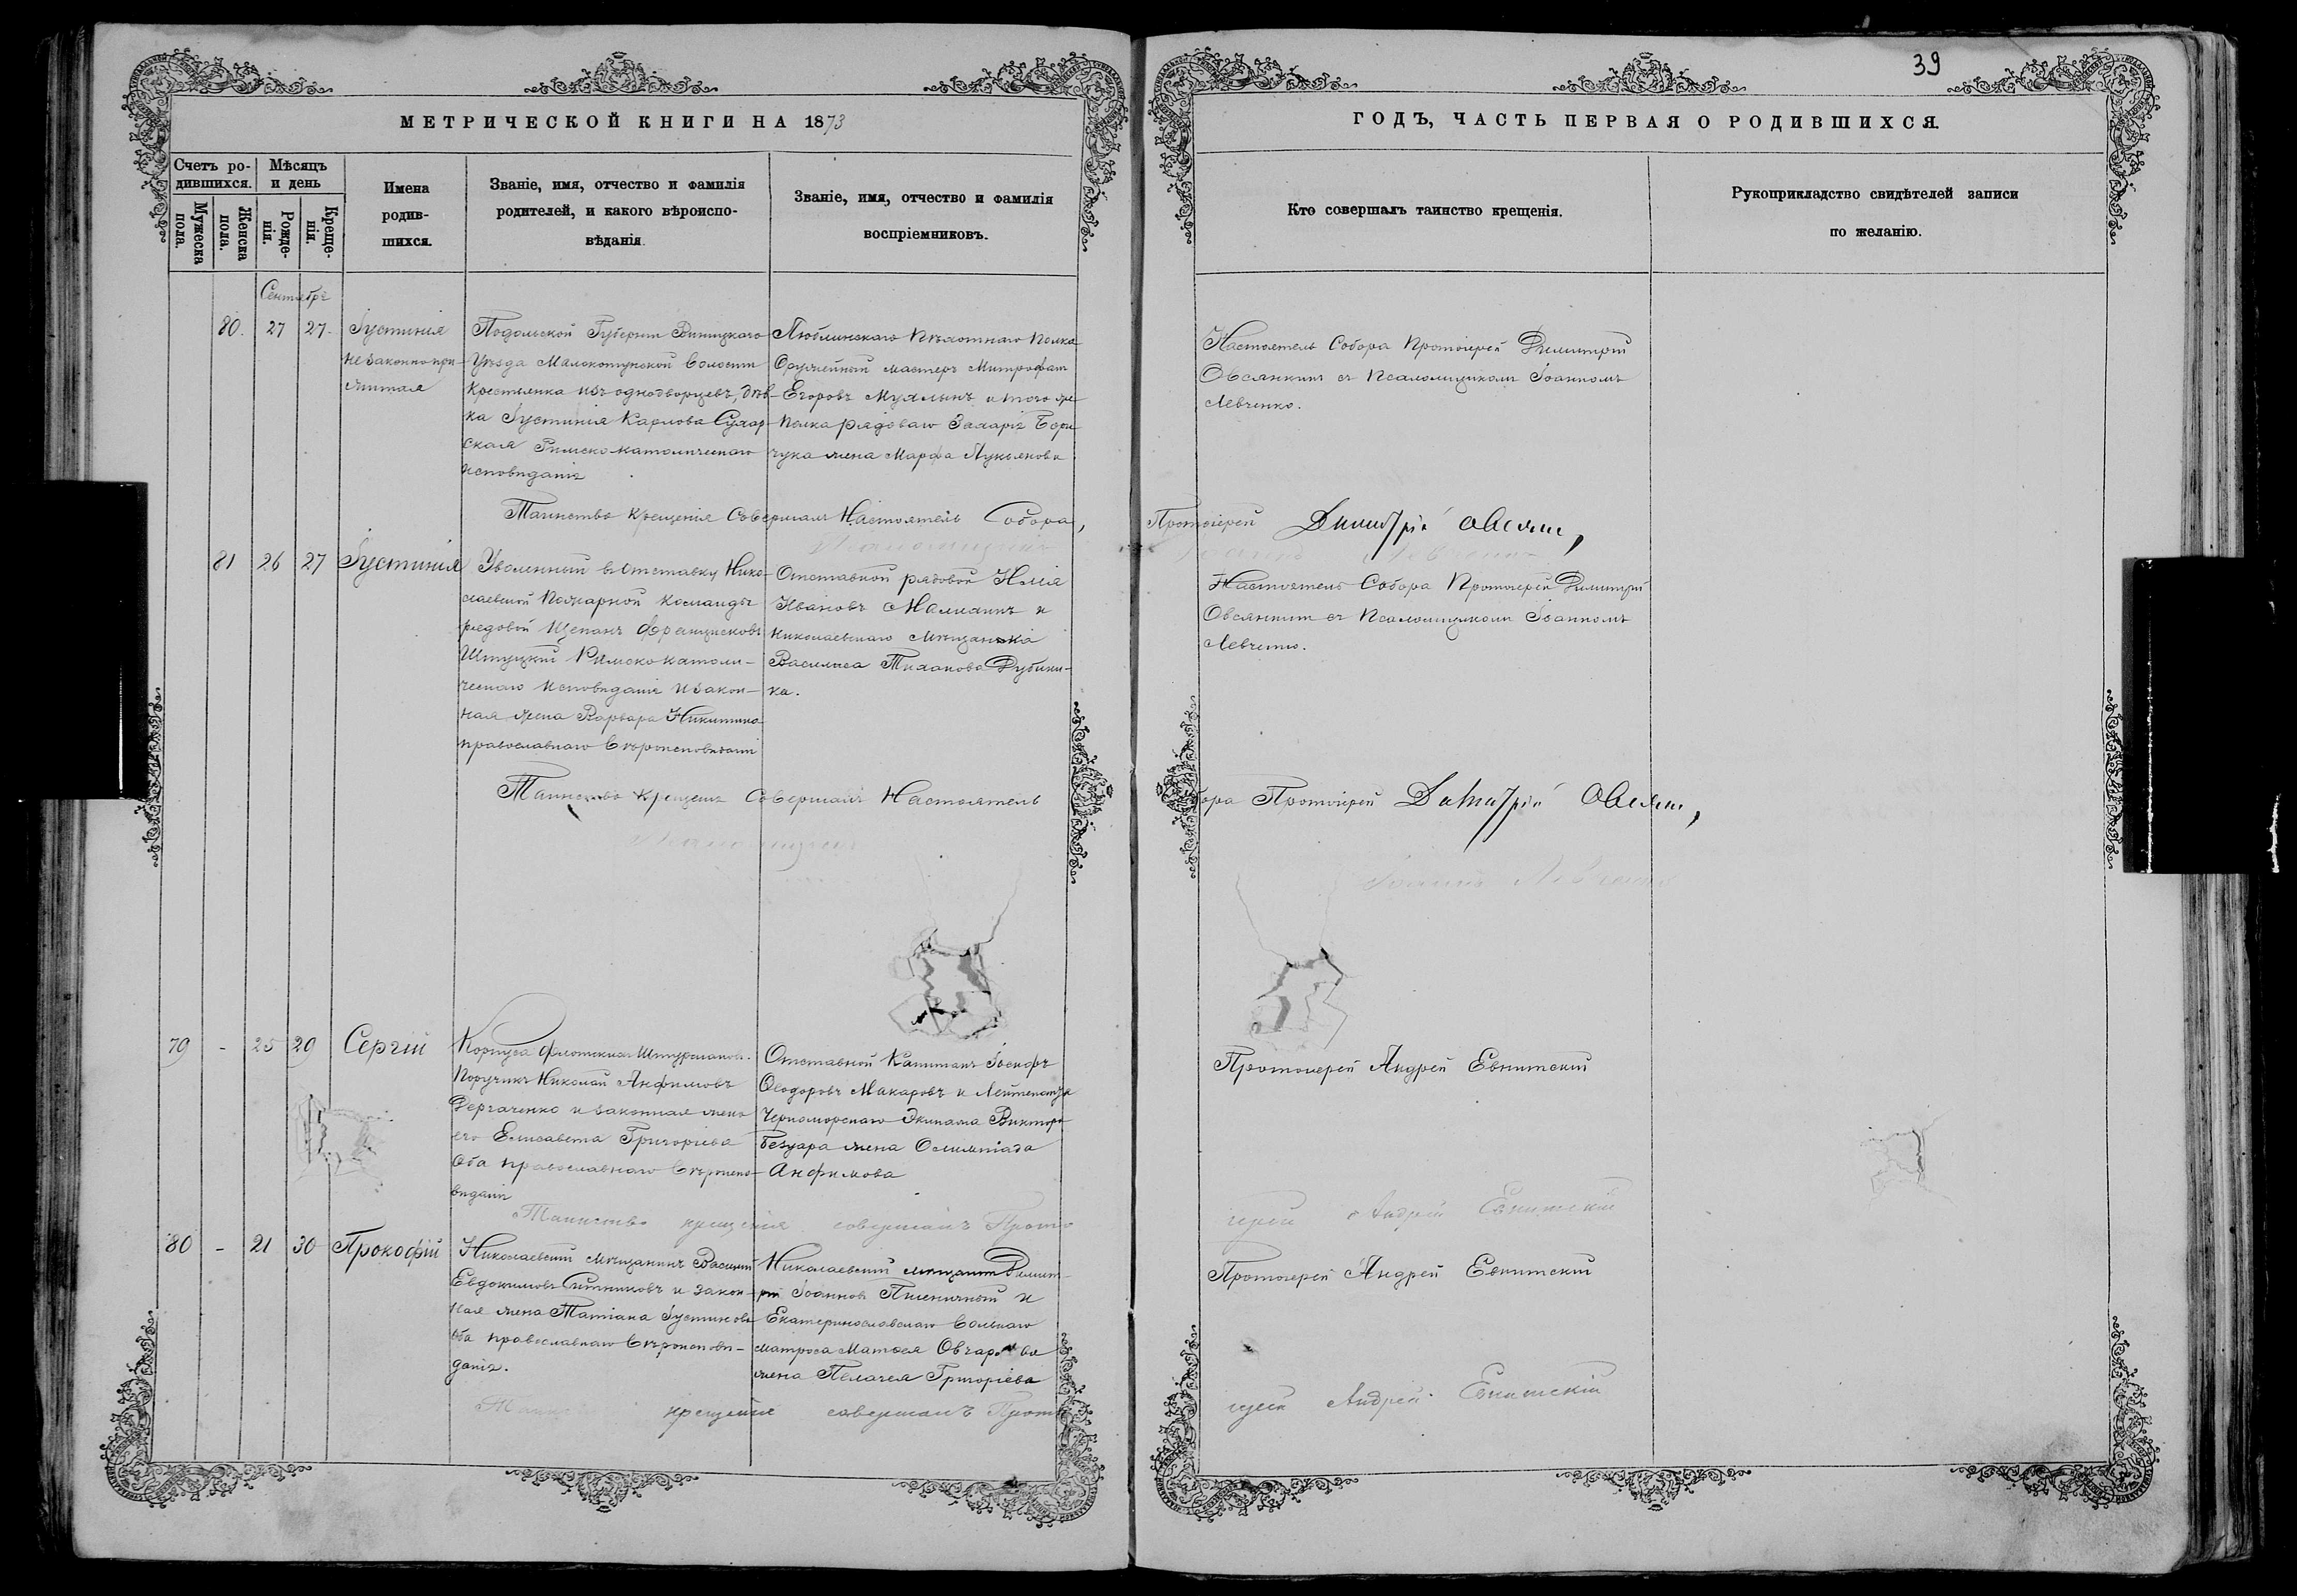 39
МЕТРИЧЕСКОЙ КНИГИ НА 1873
ГОДЪ, ЧАСТЬ ПЕРВАЯ О РОДИВШИХСЯ.
Счетъ ро-
дившихся.
Мѣсяцъ
и день
Мужеска
пола.
Женска
пола.
Рожде-
нія.
Креще-
нія.
Имена
родив-
шихся.
Званіе, имя, отчество и фамилія
родителей, и какого вѣроиспо-
вѣданія.
Званіе, имя, отчество и фамилія
воспріемниковъ.
Кто совершалъ таинство крещенія.
Рукоприкладство свидѣтелей записи
по желанію.
Сентябрь
80. 27 27.
Іустинія
незаконнопри-
житая
Подольской Губерніи Виницкаго
Уѣзда Волости
крестьянка изъ однодворцевъ, дѣв-
ка Іустинія Карлова
ская Римско католическаго
исповѣданія
Люблинскаго Пѣхотнаго Полка
Оружейный мастеръ Митрофан
Егоровъ и того же
Полка рядоваго Захарія Бори
чука жена Марфа Лукьянова
Настоятель Собора Протоіерей Димитрій
Овсянкинъ съ Псаломщикомъ Іоанномъ
Левченко.
Таинство Крещенія Совершалъ Настоятель Собора,
Протоіерей Димитрій
Псаломщикъ
81 26 27 Іустинія
Уволенный в отставку Нико-
лаевской Пожарной Команды
рядовой Щепанъ Францисковъ
Римско католи-
ческаго исповѣданія и закон-
ная жена Варвара Никитина
православнаго вѣроисповѣданія
Отставной рядовой Илія
Ивановъ и
Николаевская Мѣщанка
Василиса Дубини-
ка.
Настоятель Собора Протоіерей Димитрій
Овсянкинъ съ Псаломщикомъ Іоанномъ
Левченко.
Таинство Крещенія Совершалъ Настоятель
Протоіерей Димитрій
Псаломщикъ
Іоаннъ Левченко
79 - 25 29 Сергій
Корпуса Флотскихъ Штурмановъ
Поручикъ Николай Анфимовъ
Дергаченко и законная жена
его Елисавета Григоріева
Оба православнаго вѣроиспо-
вѣданія
Отставной Капитанъ Іосифъ
Ѳеодоровъ Макаровъ и Лейтенанта
Черноморскаго Экипажа Виктора
жена Олимпіада
Анфимова
Протоіерей Андрей Евнитскій
Таинство крещенія совершалъ Прото
іерей Андрей Евнитскій
80 - 21 30 Прокофій
Николаевскій мѣщанинъ Василій
Евдокимовъ Ситниковъ и закон-
ная жена Татіана Іустинова
Оба православнаго вѣроисповѣ-
данія.
Николаевскій мѣщанинъ Димит-
рій Іоанновъ Пшеничный и
Екатеринославскаго вольнаго
матроса Матѳея Овчарова
жена Пелагея Григоріева
Протоіерей Андрей Евнитскій
крещенія совершалъ Прото
іерей Андрей Евнитскій